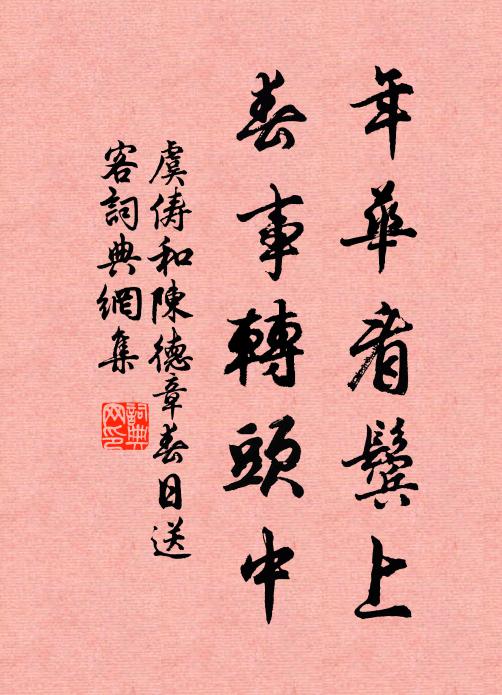 年華看鬢上
春事轉頭中
虞儔和陳德章春日送
客詞典網集
詞典
网印